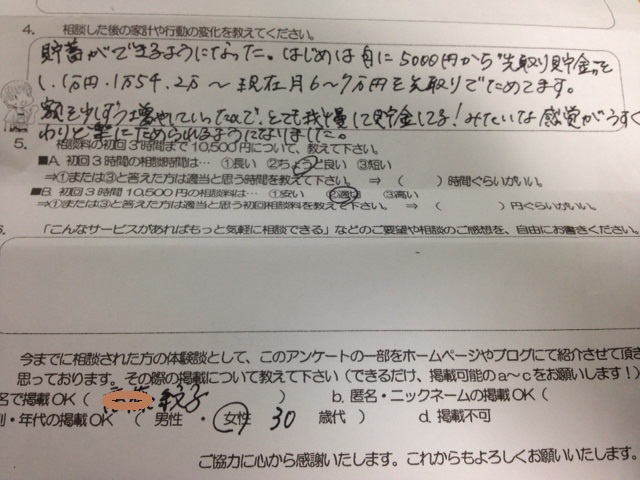 4. 相談した後の家計や行動の変化を教えてください。
貯蓄ができるようになった。はじめは月に5000円から"先取り貯金"を
し、1万円、1万5千、2万〜現在月6〜7万円を先取りでためてます。
額を少しずつ増やしていったので、とても我慢して貯金してる!みたいな感覚がうすく
わりと楽にためられるようになりました。
5. 相談料の初回3時間まで10,500円について、教えて下さい。
■A. 初回3時間の相談時間は… ①長い ②ちょうど良い ③短い
⇒①または③と答えた方は適当と思う時間を教えて下さい。 ⇒ ( )時間ぐらいがいい。
■B. 初回3時間10,500円の相談料は… ①安い ②適切 ③高い
⇒①または③と答えた方は適当と思う初回相談料を教えて下さい。 ⇒ ( )円ぐらいがいい。
「こんなサービスがあればもっと気軽に相談できる」などのご要望や相談のご感想を、自由にお書きください。
今までに相談された方の体験談として、このアンケートの一部をホームページやブログにて紹介させて頂き
思っております。その際の掲載について教えて下さい(できるだけ、掲載可能のa〜cをお願いします!)
名で掲載OK( ) b. 匿名・ニックネームの掲載OK(
別・年代の掲載OK ( 男性 ・ 女性 30 歳代 ) d. 掲載不可
ご協力に心から感謝いたします。これからもよろしくお願いいたします。